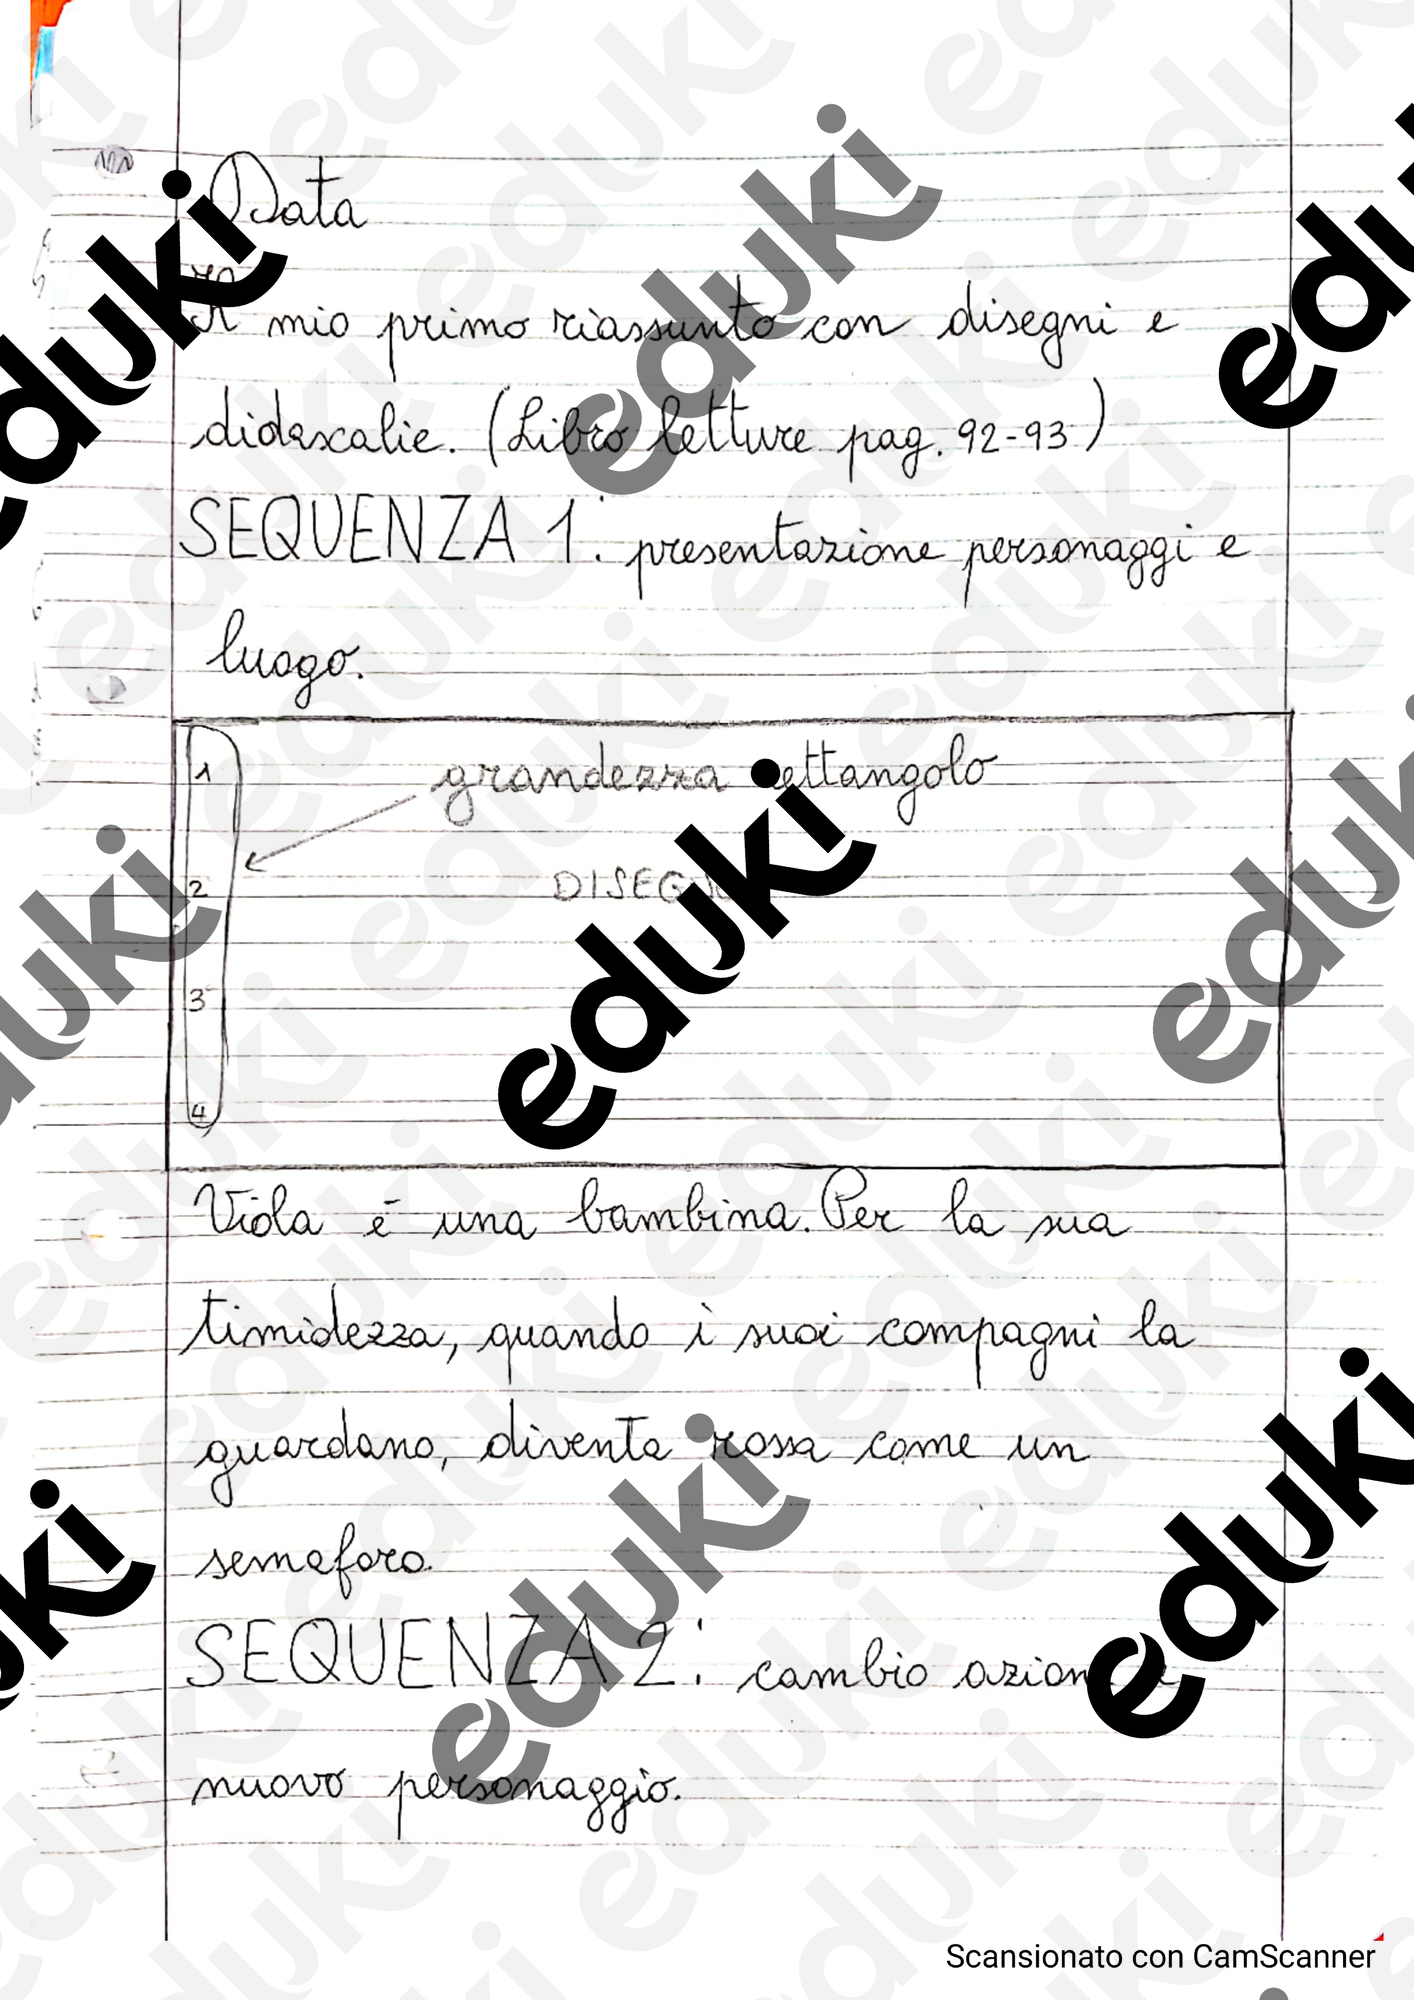 Data
Il mio primo riassunto con disegni e
didascalie. (Libro letture pag. 92-93)
SEQUENZA 1: presentazione personaggi e
luogo.
1
grandezza rettangolo
2
DISEGNO
3
4
Viola è una bambina. Per la sua
timidezza, quando i suoi compagni la
guardano, diventa rossa come un
semaforo.
SEQUENZA 2: cambio azione e
nuovo personaggio.
Scansionato con CamScanner
eduki
eduki
eduki
eduki
eduki
eduki
eduki
eduki
eduki